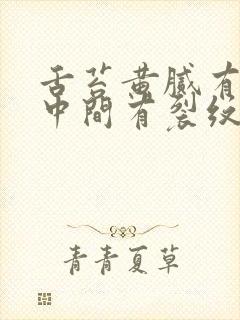 舌苔黄腻有
中間有裂紋
青青夏草